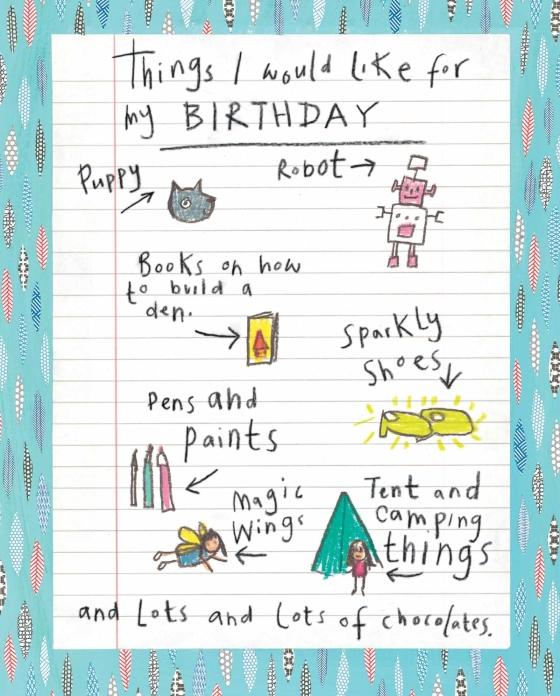 Things I would like for
my BIRTHDAY
Puppy
Robot
Books on how
to build a
den.
Sparkly
Shoes
Pens and
paints
Magic
Wings
Tent and
camping
things
and Lots and Lots of chocolates.